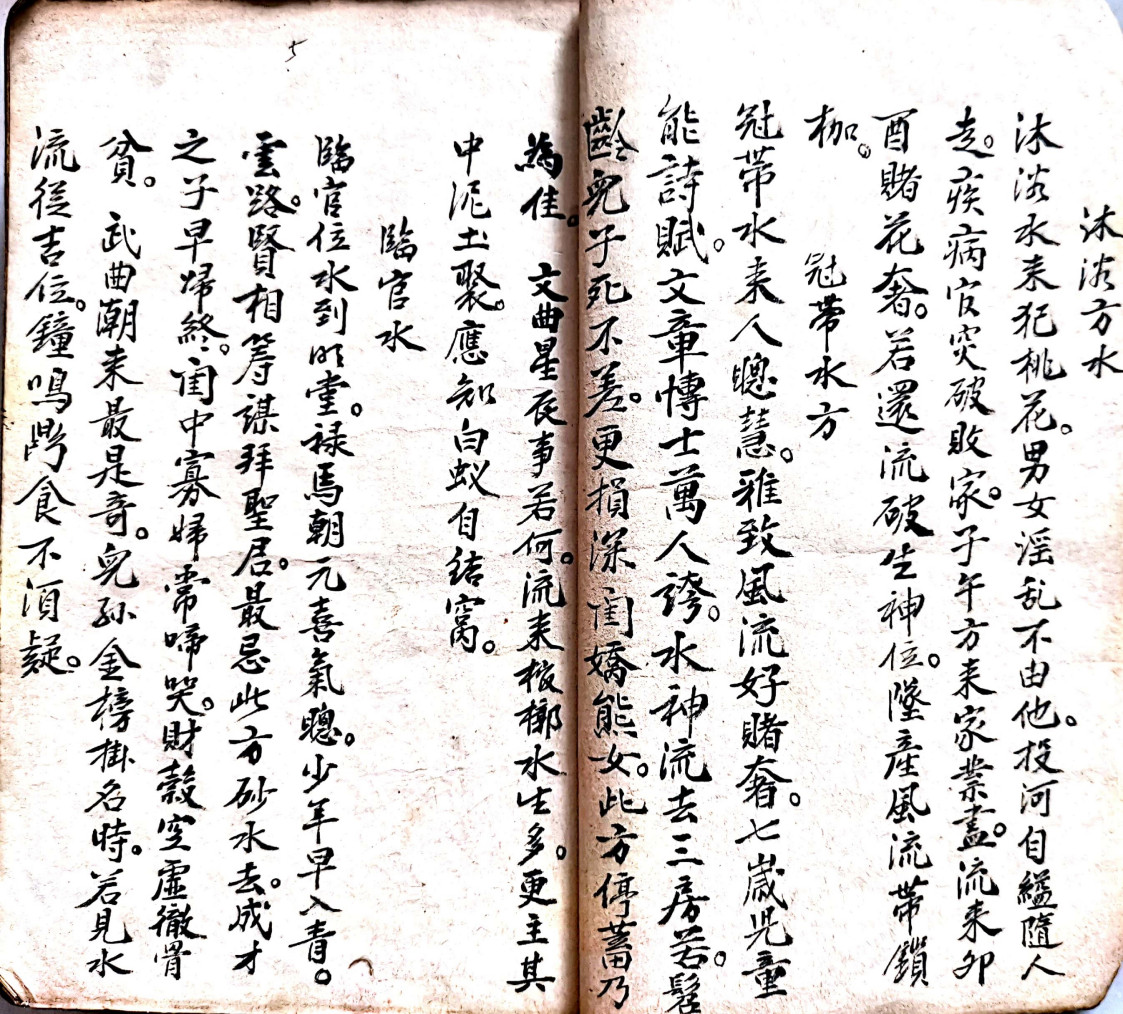 沐浴方水
沐浴水来犯桃花。男女淫乱不由他。投河自縊隨人
走。疾病官灾破敗家。子午方来家業盡。流来卯
酉賭花奢。若還流破生神位。墜產風流帶鎖
枷。 冠帶水方
冠帶水来人聰慧。雅致風流好賭奢。七歲児童
能詩賦。文章博士萬人誇。水神流去三房若。髫
齡兒子死不差。更損深闺嬌態女。此方停蓄乃
為佳。 文曲星辰事若何。流来棺槨水生多。更主其
中泥土聚。應知白蚁自结窩。
臨官水
臨官位水到明堂。禄馬朝元喜氣聰。少年早入青
雲路。賢相籌謀拜聖君。最忌此方砂水去。成才
之子早歸終。闺中寡婦常啼哭。財穀空虛徹骨
貧。 武曲潮来最是奇。兒孫金榜掛名時。若見水
流從吉位。鐘鳴鼎食不須疑。
5